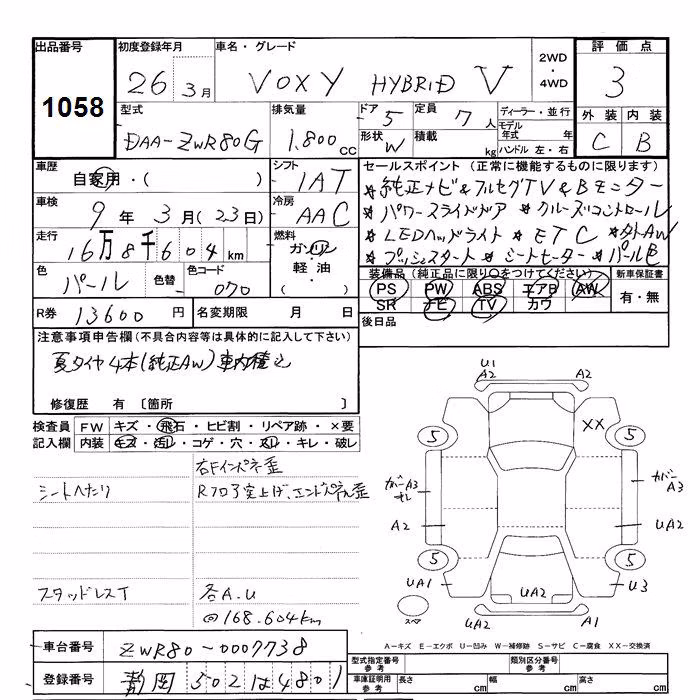 出品番号 初度登録年月 車名・グレード 2WD・4WD 評価点
1058 26 3月 VOXY HYBRID V 3
型式 排気量 ドア 5 定員 7人 ディーラー・並行 外装 内装
DAA-ZWR80G 1.800cc 形状 W 積載 kg モデル年式 年式 ハンドル 左・右 C B
車歴 自家用・( ) シフト IAT セールスポイント (正常に機能するものに限ります)
車検 9年 3月(23日) 冷房 AAC ※純正ナビ&フルセグTV&Bモニター
走行 16万8千604km 燃料 ガソリン 軽油・( ) ※パワースライドドア ※クルーズコントロール
※LEDヘッドライト ※ETC ※社外AW
色 パール 色替 色コード 070 ※プッシュスタート ※シートヒーター ※パールB
装備品(純正品に限り○をつけてください) 新車保証書
PS PW ABS エアB AW 有・無
SR ナビ TV カワ
R券 13600円 名変期限 月 日 後日品
注意事項申告欄(不具合内容等は具体的に記入して下さい)
夏タイヤ4本(純正AW)車内積込
修復歴 有 〔箇所 〕
検査員記入欄 FW キズ・飛石・ヒビ割・リペア跡・×要
内装 キズ・汚れ・コゲ・穴・スレ・キレ・破レ
右Fインパネ歪
シートヘたり Rフロア突上げ、エンドパネル歪
スタッドレスT 各A.U
@168.604km
U1
A2 A2
XX
5 5
カバーA3 カバーA3
A2 UA2
5 5
UA1 UA2 U3
スペア UA2 A1
A-キズ E-エクボ U-凹み W-補修跡 S-サビ C-腐食 XX-交換済
車台番号 ZWR80-0007738
登録番号 静岡 502 は 4801
型式指定番号 参考 類別区分番号 参考
車庫証明用 参考 長さ cm 幅 cm 高さ cm